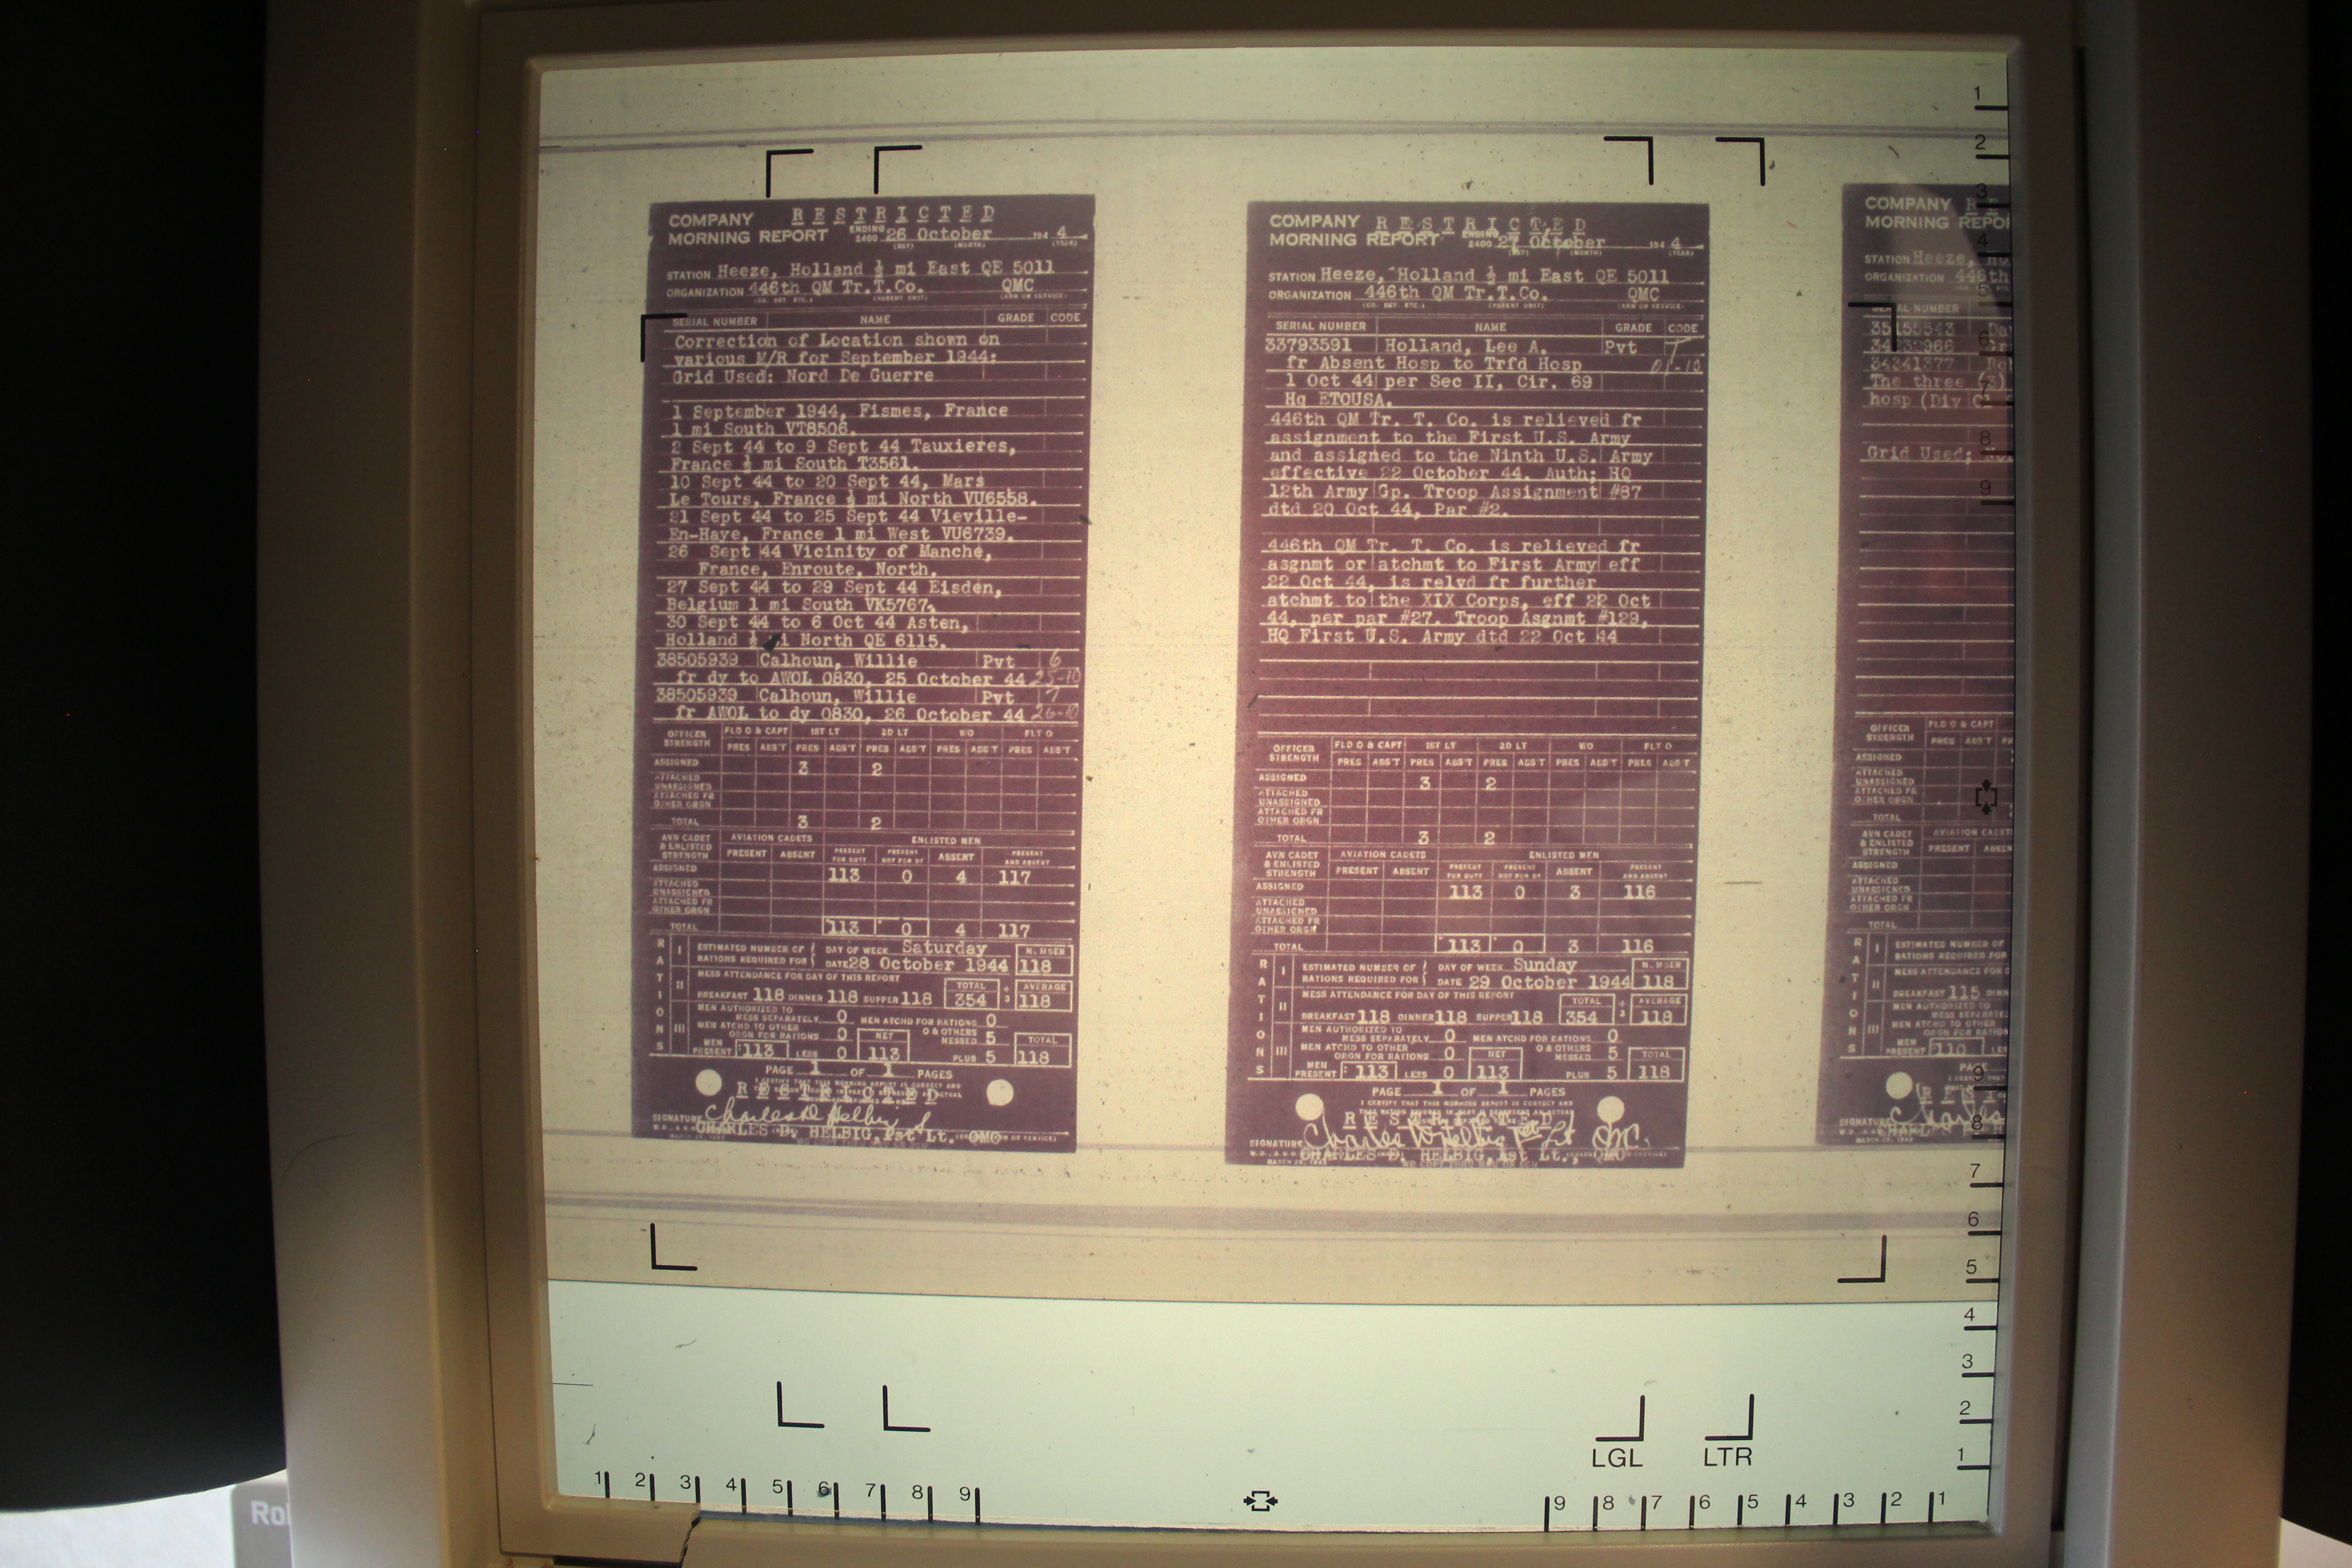 COMPANY RESTRICTED
MORNING REPORT ENDING 2400 26 October 194 4
(DAY) (MONTH) (YEAR)
STATION Heeze, Holland ½ mi East QE 5011
ORGANIZATION 446th QM Tr.T.Co. QMC
SERIAL NUMBER NAME GRADE CODE
Correction of Location shown on
various M/R for September 1944:
Grid Used: Nord De Guerre
1 September 1944, Fismes, France
1 mi South VT8506.
2 Sept 44 to 9 Sept 44 Tauxieres,
France ½ mi South T3561.
10 Sept 44 to 20 Sept 44, Mars
Le Tours, France ½ mi North VU6558.
21 Sept 44 to 25 Sept 44 Vieville-
En-Haye, France 1 mi West VU6739.
26 Sept 44 Vicinity of Manche,
France, Enroute, North.
27 Sept 44 to 29 Sept 44 Eisden,
Belgium 1 mi South VK5767.
30 Sept 44 to 6 Oct 44 Asten,
Holland ½ mi North QE 6115.
38505939 Calhoun, Willie Pvt 6
fr dy to AWOL 0830, 25 October 44 25-10
38505939 Calhoun, Willie Pvt 7
fr AWOL to dy 0830, 26 October 44 26-10
OFFICER STRENGTH FLD O & CAPT 1ST LT 2D LT WO FLT O
PRES ABS'T PRES ABS'T PRES ABS'T PRES ABS'T PRES ABS'T
ASSIGNED 3 2
ATTACHED UNASSIGNED
ATTACHED FR OTHER ORGN
TOTAL 3 2
AVN CADET & ENLISTED STRENGTH AVIATION CADETS ENLISTED MEN
PRESENT ABSENT PRESENT FOR DUTY PRESENT NOT FOR DY ABSENT PRESENT AND ABSENT
ASSIGNED 113 0 4 117
ATTACHED UNASSIGNED
ATTACHED FR OTHER ORGN
TOTAL 113 0 4 117
RATIONS
I ESTIMATED NUMBER OF RATIONS REQUIRED FOR DAY OF WEEK Saturday NUMBER
DATE 28 October 1944 118
II MESS ATTENDANCE FOR DAY OF THIS REPORT TOTAL ÷ 3 AVERAGE
BREAKFAST 118 DINNER 118 SUPPER 118 354 118
III MEN AUTHORIZED TO MESS SEPARATELY 0 MEN ATCHD FOR RATIONS 0
MEN ATCHD TO OTHER ORGN FOR RATIONS 0 NET O & OTHERS MESSED 5 TOTAL
MEN PRESENT 113 LESS 0 113 PLUS 5 118
PAGE 1 OF 1 PAGES
I CERTIFY THAT THIS MORNING REPORT IS CORRECT AND
RESTRICTED
SIGNATURE Charles D Helbig
CHARLES D. HELBIG, 1st Lt. QMC
COMPANY RESTRICTED
MORNING REPORT ENDING 2400 27 October 194 4
(DAY) (MONTH) (YEAR)
STATION Heeze, Holland ½ mi East QE 5011
ORGANIZATION 446th QM Tr.T.Co. QMC
SERIAL NUMBER NAME GRADE CODE
33793591 Holland, Lee A. Pvt T
fr Absent Hosp to Trfd Hosp 01-10
1 Oct 44 per Sec II, Cir. 69
Hq ETOUSA.
446th QM Tr. T. Co. is relieved fr
assignment to the First U.S. Army
and assigned to the Ninth U.S. Army
effective 22 October 44. Auth; HQ
12th Army Gp. Troop Assignment #87
dtd 20 Oct 44, Par #2.
446th QM Tr. T. Co. is relieved fr
asgnmt or atchmt to First Army eff
22 Oct 44, is relvd fr further
atchmt to the XIX Corps, eff 22 Oct
44, per par #27. Troop Asgnmt #129,
HQ First U.S. Army dtd 22 Oct 44
OFFICER STRENGTH FLD O & CAPT 1ST LT 2D LT WO FLT O
PRES ABS'T PRES ABS'T PRES ABS'T PRES ABS'T PRES ABS'T
ASSIGNED 3 2
ATTACHED UNASSIGNED
ATTACHED FR OTHER ORGN
TOTAL 3 2
AVN CADET & ENLISTED STRENGTH AVIATION CADETS ENLISTED MEN
PRESENT ABSENT PRESENT FOR DUTY PRESENT NOT FOR DY ABSENT PRESENT AND ABSENT
ASSIGNED 113 0 3 116
ATTACHED UNASSIGNED
ATTACHED FR OTHER ORGN
TOTAL 113 0 3 116
RATIONS
I ESTIMATED NUMBER OF RATIONS REQUIRED FOR DAY OF WEEK Sunday NUMBER
DATE 29 October 1944 118
II MESS ATTENDANCE FOR DAY OF THIS REPORT TOTAL ÷ 3 AVERAGE
BREAKFAST 118 DINNER 118 SUPPER 118 354 118
III MEN AUTHORIZED TO MESS SEPARATELY 0 MEN ATCHD FOR RATIONS 0
MEN ATCHD TO OTHER ORGN FOR RATIONS 0 NET O & OTHERS MESSED 5 TOTAL
MEN PRESENT 113 LESS 0 113 PLUS 5 118
PAGE 1 OF 1 PAGES
I CERTIFY THAT THIS MORNING REPORT IS CORRECT AND
RESTRICTED
SIGNATURE Charles D Helbig 1st Lt QMC
CHARLES D. HELBIG, 1st Lt., QMC
COMPANY RE
MORNING REPOR
STATION Heeze,
ORGANIZATION 446th
SERIAL NUMBER
35155543
34341377
The three (3)
hosp (Div
Grid Used;
OFFICER STRENGTH FLD O & CAPT
PRES ABS'T
ASSIGNED
ATTACHED UNASSIGNED
ATTACHED FR OTHER ORGN
TOTAL
AVN CADET & ENLISTED STRENGTH AVIATION CADETS
PRESENT
ASSIGNED
ATTACHED UNASSIGNED
ATTACHED FR OTHER ORGN
TOTAL
RATIONS
I ESTIMATED NUMBER OF
RATIONS REQUIRED FOR
II MESS ATTENDANCE FOR
BREAKFAST 115
III MEN AUTHORIZED TO
MESS SEPARATE
MEN ATCHD TO OTHER
MEN PRESENT 110
SIGNATURE Charles
1 2 3 4 5 6 7 8 9
9 8 7 6 5 4 3 2 1
LGL LTR
1 2 3 4 5 6 7 8 9
9 8 7 6 5 4 3 2 1